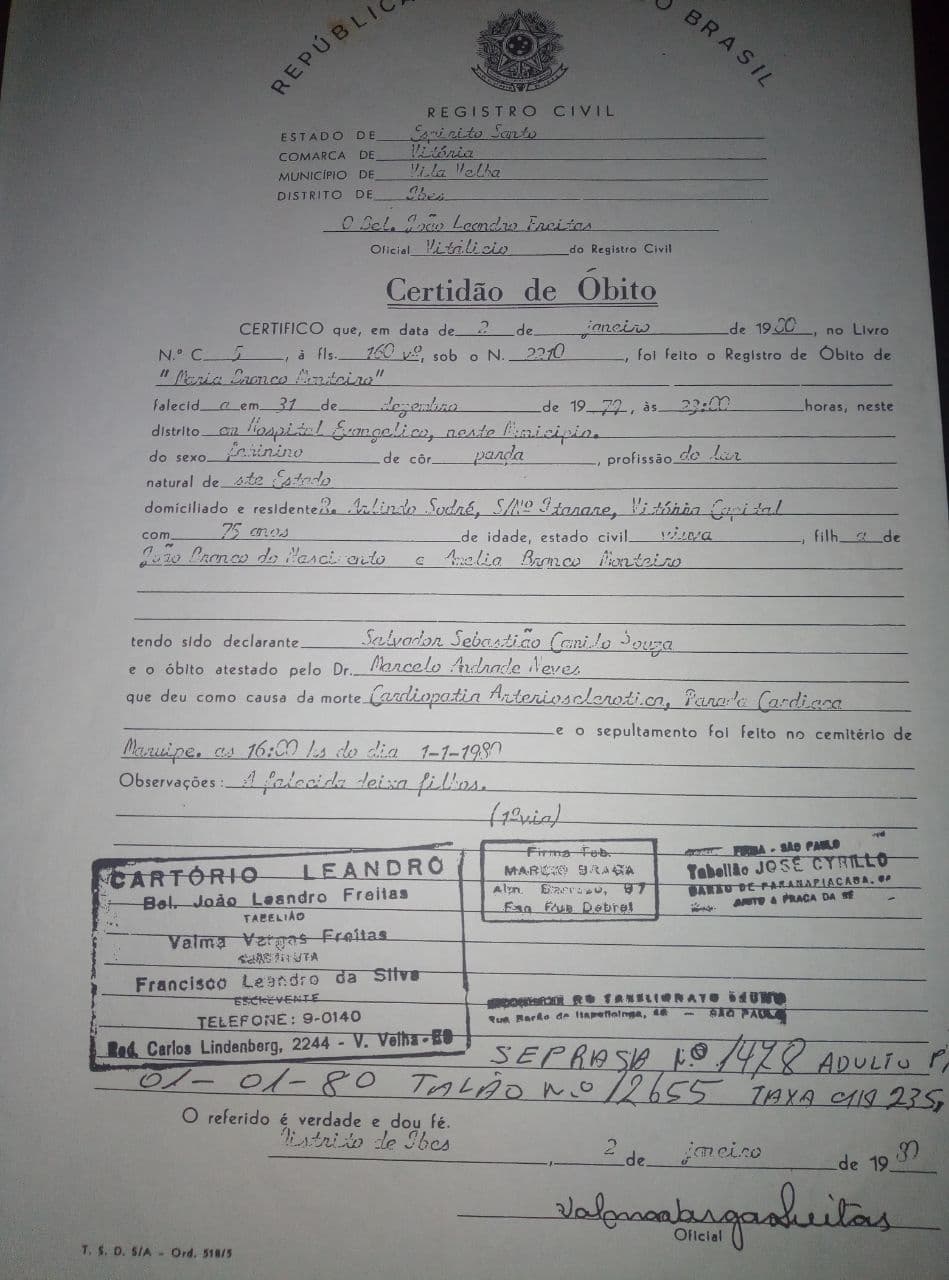 REPÚBLICA O BRASIL
REGISTRO CIVIL
ESTADO DE Espirito Santo
COMARCA DE Vitória
MUNICÍPIO DE Vila Velha
DISTRITO DE Ibes
O Bel. João Leandro Freitas
Oficial Vitalicio do Registro Civil
Certidão de Óbito
CERTIFICO que, em data de 2 de janeiro de 1980, no Livro
N.º C 5, à fls. 160 vº, sob o N. 2210, foi feito o Registro de Óbito de
"Maria Bronco Monteiro"
falecida em 31 de dezembro de 1979, às 23:00 horas, neste
distrito on Hospital Evangelico, neste Municipio.
do sexo feminino de côr parda, profissão do lar
natural de ste Estado
domiciliado e residente R. Arlindo Sodré, S/Nº Itarare, Vitória Capital
com 75 anos de idade, estado civil viuva, filha de
João Bronco do Nascimento e Amelia Bronco Monteiro
tendo sido declarante Salvador Sebastião Camilo Souza
e o óbito atestado pelo Dr. Marcelo Andrade Neves
que deu como causa da morte Cardiopatia Arteriosclerotica, Parada Cardiaca
e o sepultamento foi feito no cemitério de
Maruipe. as 16:00 hs do dia 1-1-1980
Observações: A falecida deixa filhos.
(1ª via)
CARTÓRIO LEANDRO
Bel. João Leandro Freitas
TABELIÃO
Valma Vargas Freitas
SUBSTITUTA
Francisco Leandro da Silva
ESCREVENTE
TELEFONE: 9-0140
Rod. Carlos Lindenberg, 2244 - V. Velha-ES
Firma Tab.
MARCIO BRAGA
97
Esq. Rua Debret
FIRMA - SÃO PAULO
Tabelião JOSÉ CYRILLO
BARÃO DE PARANAPIACABA,
JUNTO A PRAÇA DA SÉ
TABELIONATO
Rua Barão de Itapetininga, — SÃO PAULO
SEPRASA Nº 1478 ADULTO P,
01-01-80 TALÃO N.º 12655 TAXA 235,
O referido é verdade e dou fé.
Distrito de Ibes, 2 de janeiro de 1980
Valma Vargas Freitas
Oficial
T. S. D. S/A - Ord. 518/5